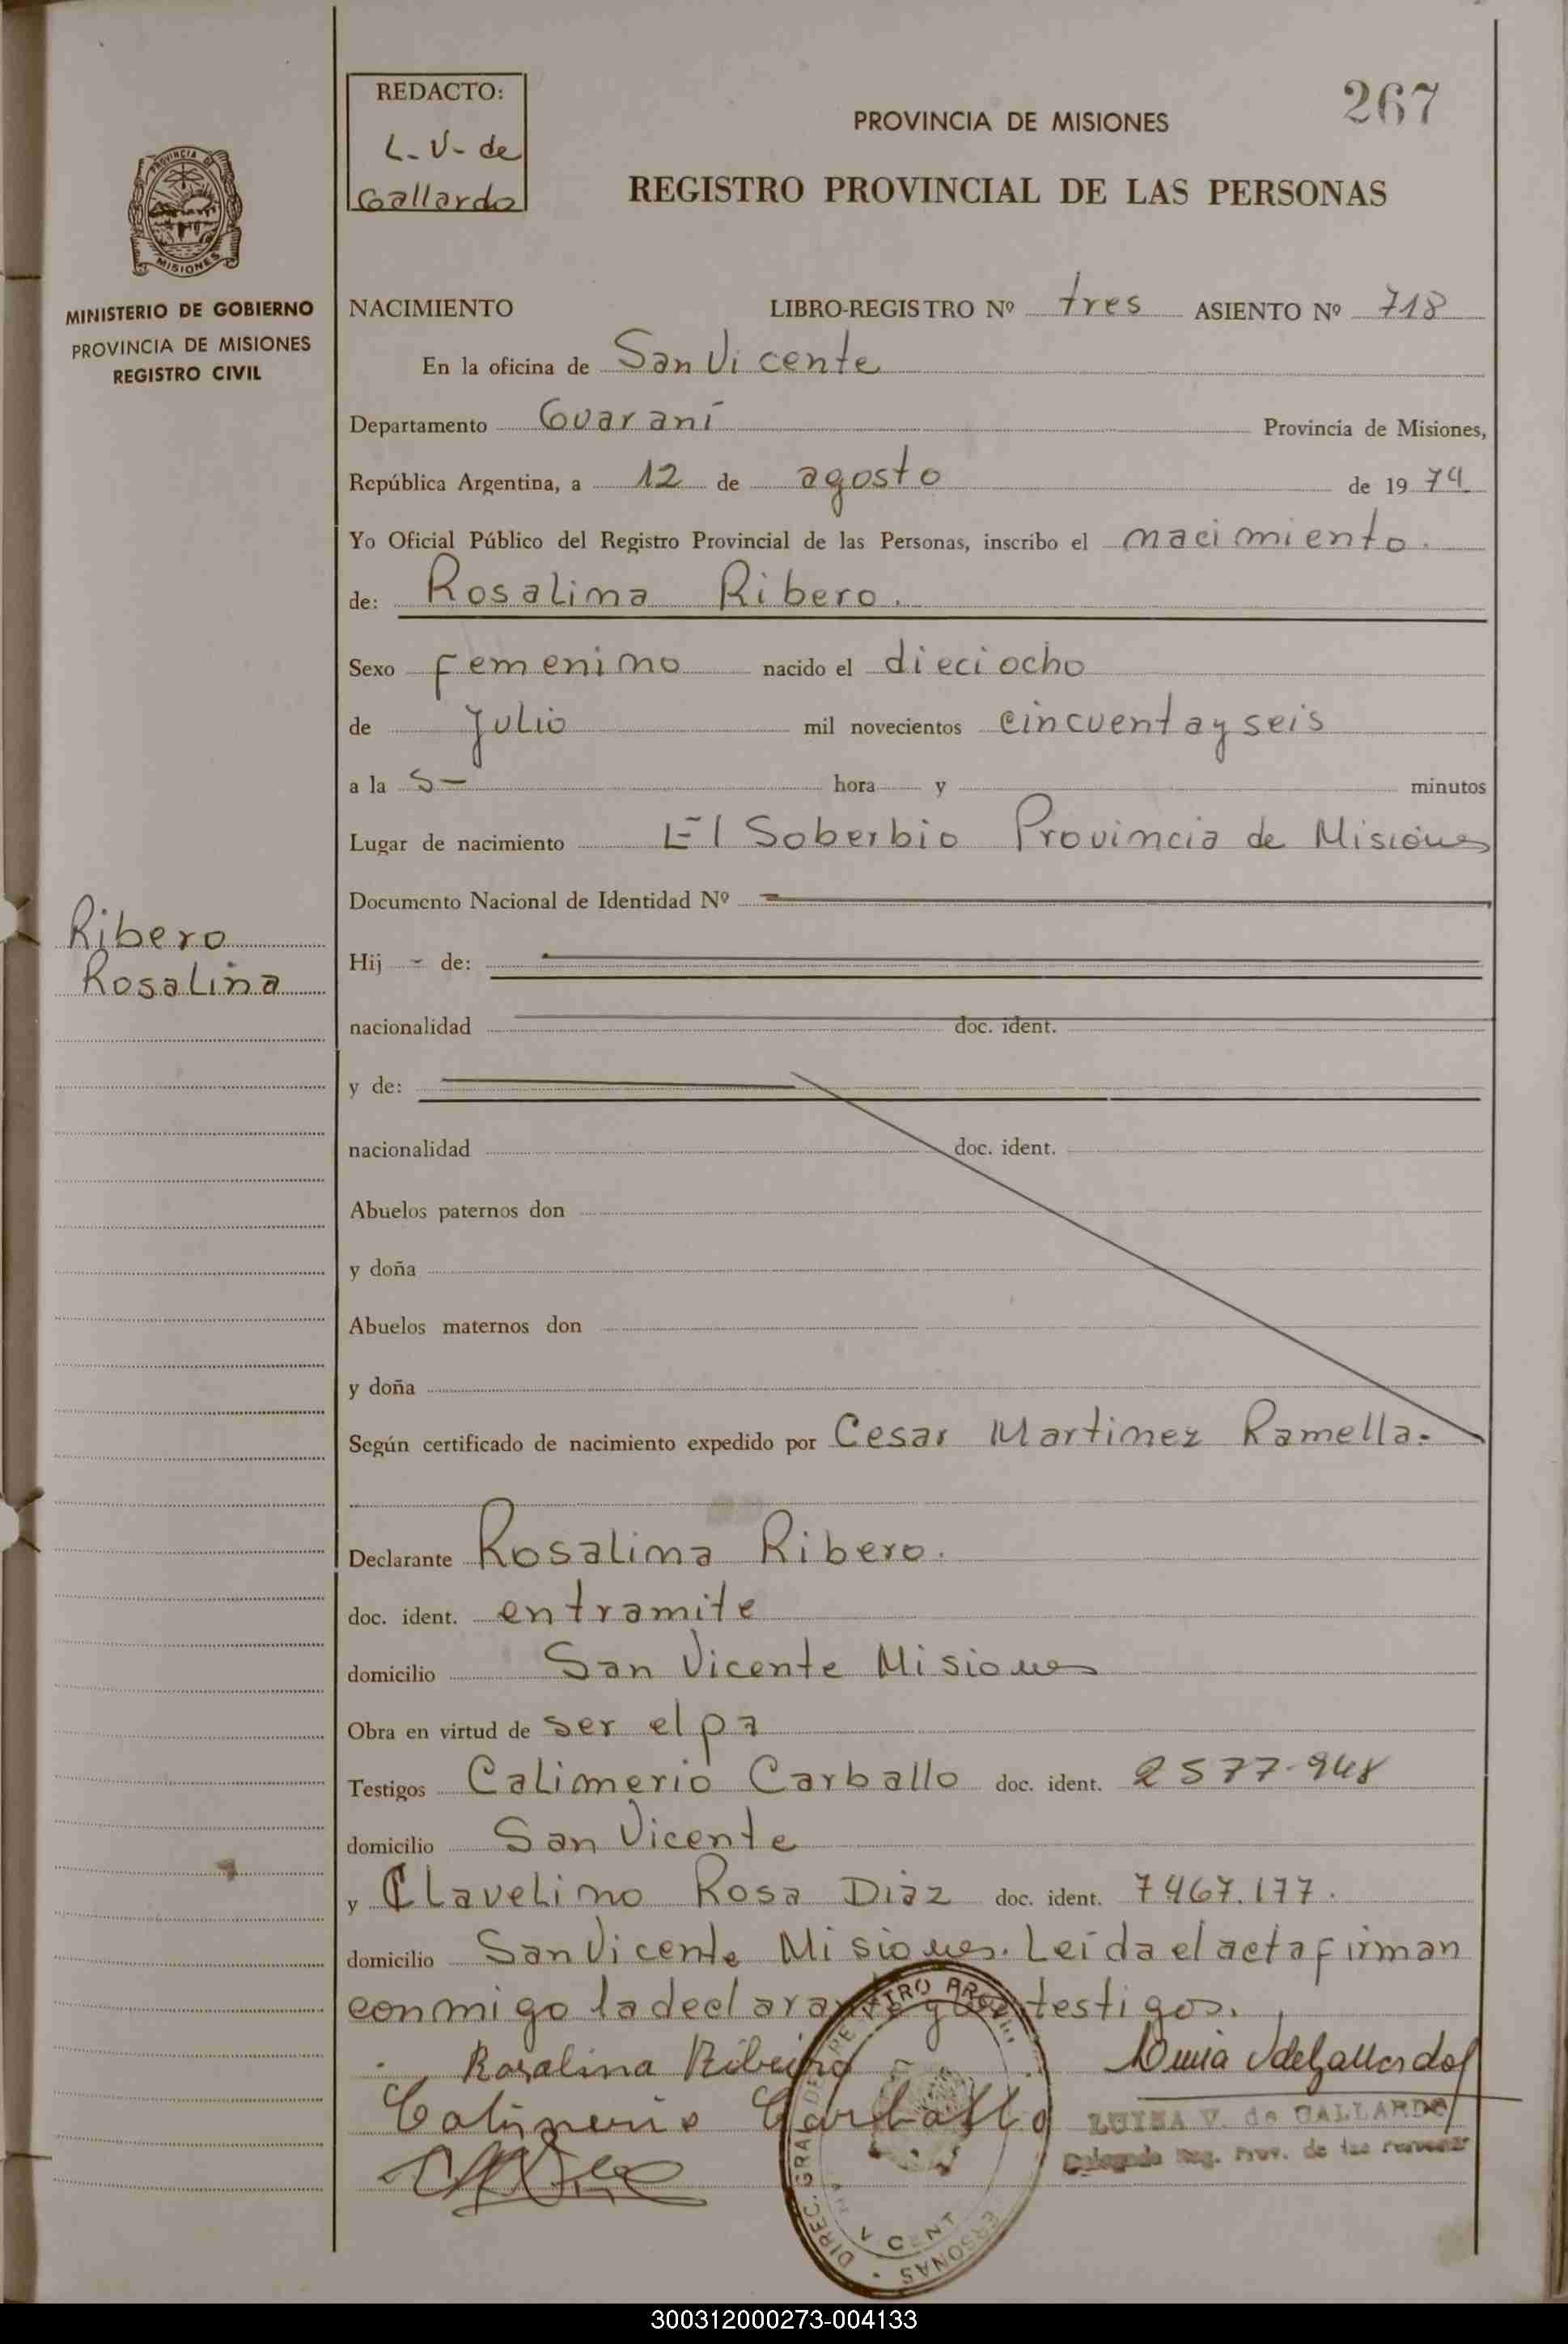 267
REDACTO:
L. V. de
Gallardo
PROVINCIA DE MISIONES
REGISTRO PROVINCIAL DE LAS PERSONAS
PROVINCIA DE
MISIONES
MINISTERIO DE GOBIERNO
PROVINCIA DE MISIONES
REGISTRO CIVIL
NACIMIENTO LIBRO-REGISTRO Nº tres ASIENTO Nº 718
En la oficina de San Vicente
Departamento Guaraní Provincia de Misiones,
República Argentina, a 12 de agosto de 19 74
Yo Oficial Público del Registro Provincial de las Personas, inscribo el nacimiento.
de: Rosalina Ribero.
Sexo femenino nacido el dieciocho
de Julio mil novecientos cincuenta y seis
a la 5- hora y minutos
Lugar de nacimiento El Soberbio Provincia de Misiones
Documento Nacional de Identidad Nº
Ribero
Rosalina
Hij - de:
nacionalidad doc. ident.
y de:
nacionalidad doc. ident.
Abuelos paternos don
y doña
Abuelos maternos don
y doña
Según certificado de nacimiento expedido por Cesar Martinez Ramella.
Declarante Rosalina Ribero.
doc. ident. en tramite
domicilio San Vicente Misiones
Obra en virtud de ser el pa
Testigos Calimerio Carballo doc. ident. 2577.948
domicilio San Vicente
y Clavelino Rosa Diaz doc. ident. 7467.177.
domicilio San Vicente Misiones. Leída el acta firman
conmigo la declarante y los testigos.
Rosalina Ribeiro
Calimerio Carballo
LUISA V. de GALLARDO
Delegada Reg. Prov. de las Personas
300312000273-004133